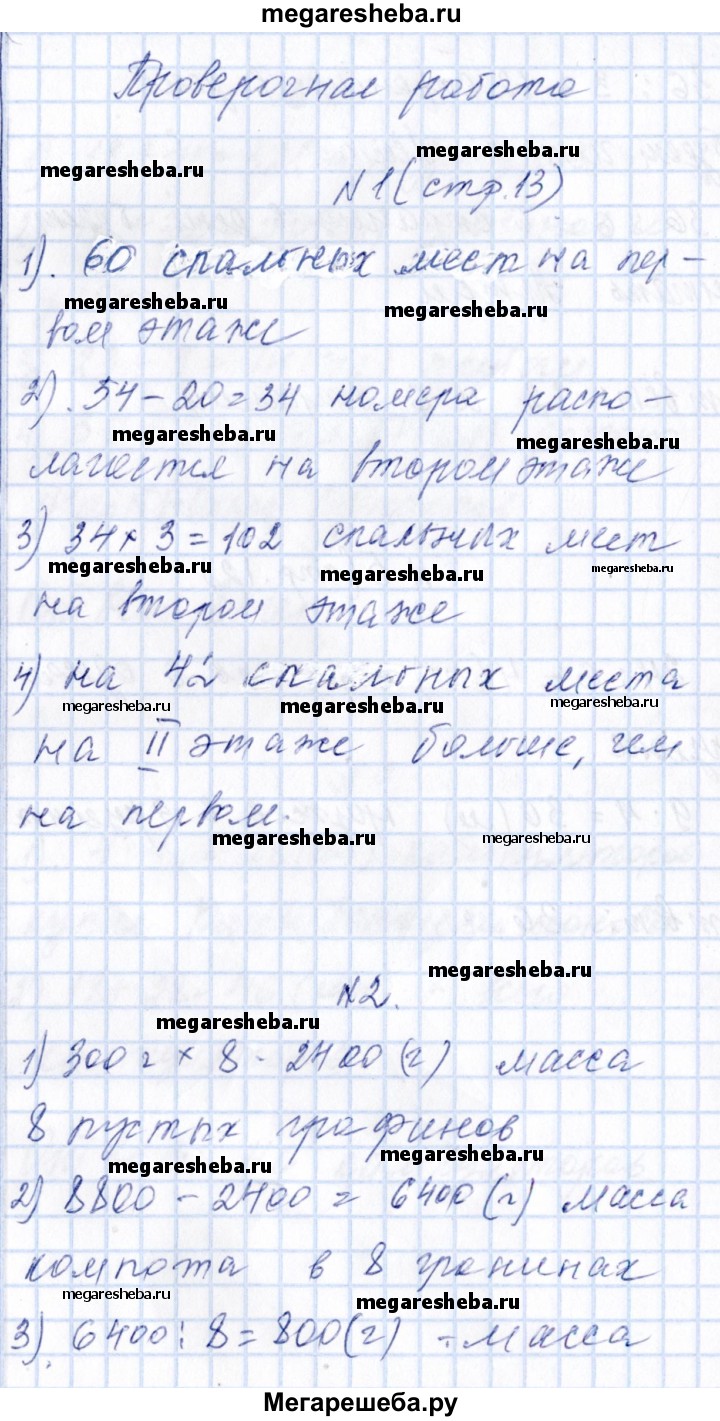 megaresheba.ru
Проверочная работа
megaresheba.ru
megaresheba.ru
№1 (стр.13)
1). 60 спальных мест на пер-
megaresheba.ru
megaresheba.ru
вом этаже
2). 54 - 20 = 34 номера распо-
megaresheba.ru
megaresheba.ru
лагается на втором этаже
3) 34 × 3 = 102 спальных мест
megaresheba.ru
megaresheba.ru
megaresheba.ru
на втором этаже
4) на 42 спальных места
megaresheba.ru
megaresheba.ru
megaresheba.ru
на II этаже больше, чем
на первом.
megaresheba.ru
megaresheba.ru
megaresheba.ru
№2.
megaresheba.ru
1) 300 г × 8 - 2400 (г) масса
8 пустых графинов
megaresheba.ru
megaresheba.ru
2) 8800 - 2400 = 6400 (г) масса
компота в 8 гранинах
megaresheba.ru
megaresheba.ru
3). 6400 : 8 = 800 (г) - масса
Мегарешеба.ру